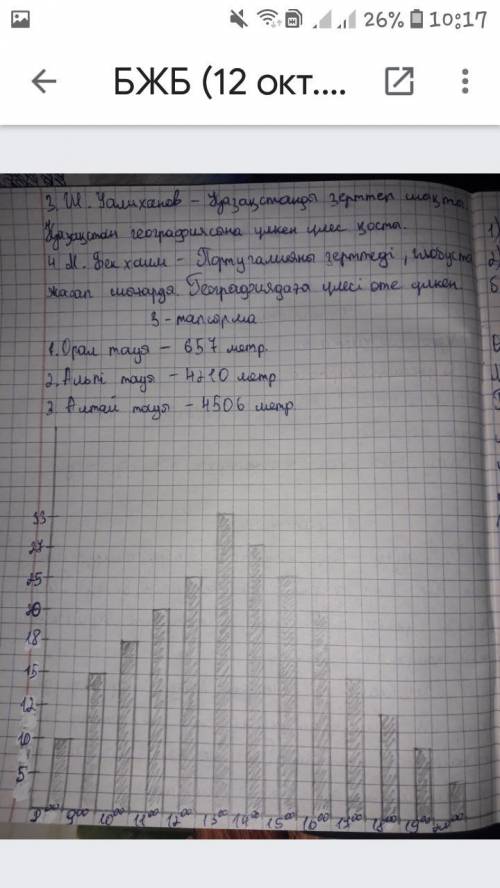 26% 10:17
БЖБ (12 окт....
3. Ш. Уалиханов – Қазақстанды зерттеп шықты
Қазақстан географиясына үлкен үлес қосты.
4. М. Бекхаим – Португалияны зерттеді, глобуста
жасап шығарды. Географиядаға үлесі өте үлкен.
3 - тапсырма
1. Орал тауы – 657 метр.
2. Альпі тауы – 4210 метр
3. Алтай тауы – 4506 метр.
33
27
25
20
18
15
12
10
5
8⁰⁰ 9⁰⁰ 10⁰⁰ 11⁰⁰ 12⁰⁰ 13⁰⁰ 14⁰⁰ 15⁰⁰ 16⁰⁰ 17⁰⁰ 18⁰⁰ 19⁰⁰ 20⁰⁰
1)
2)